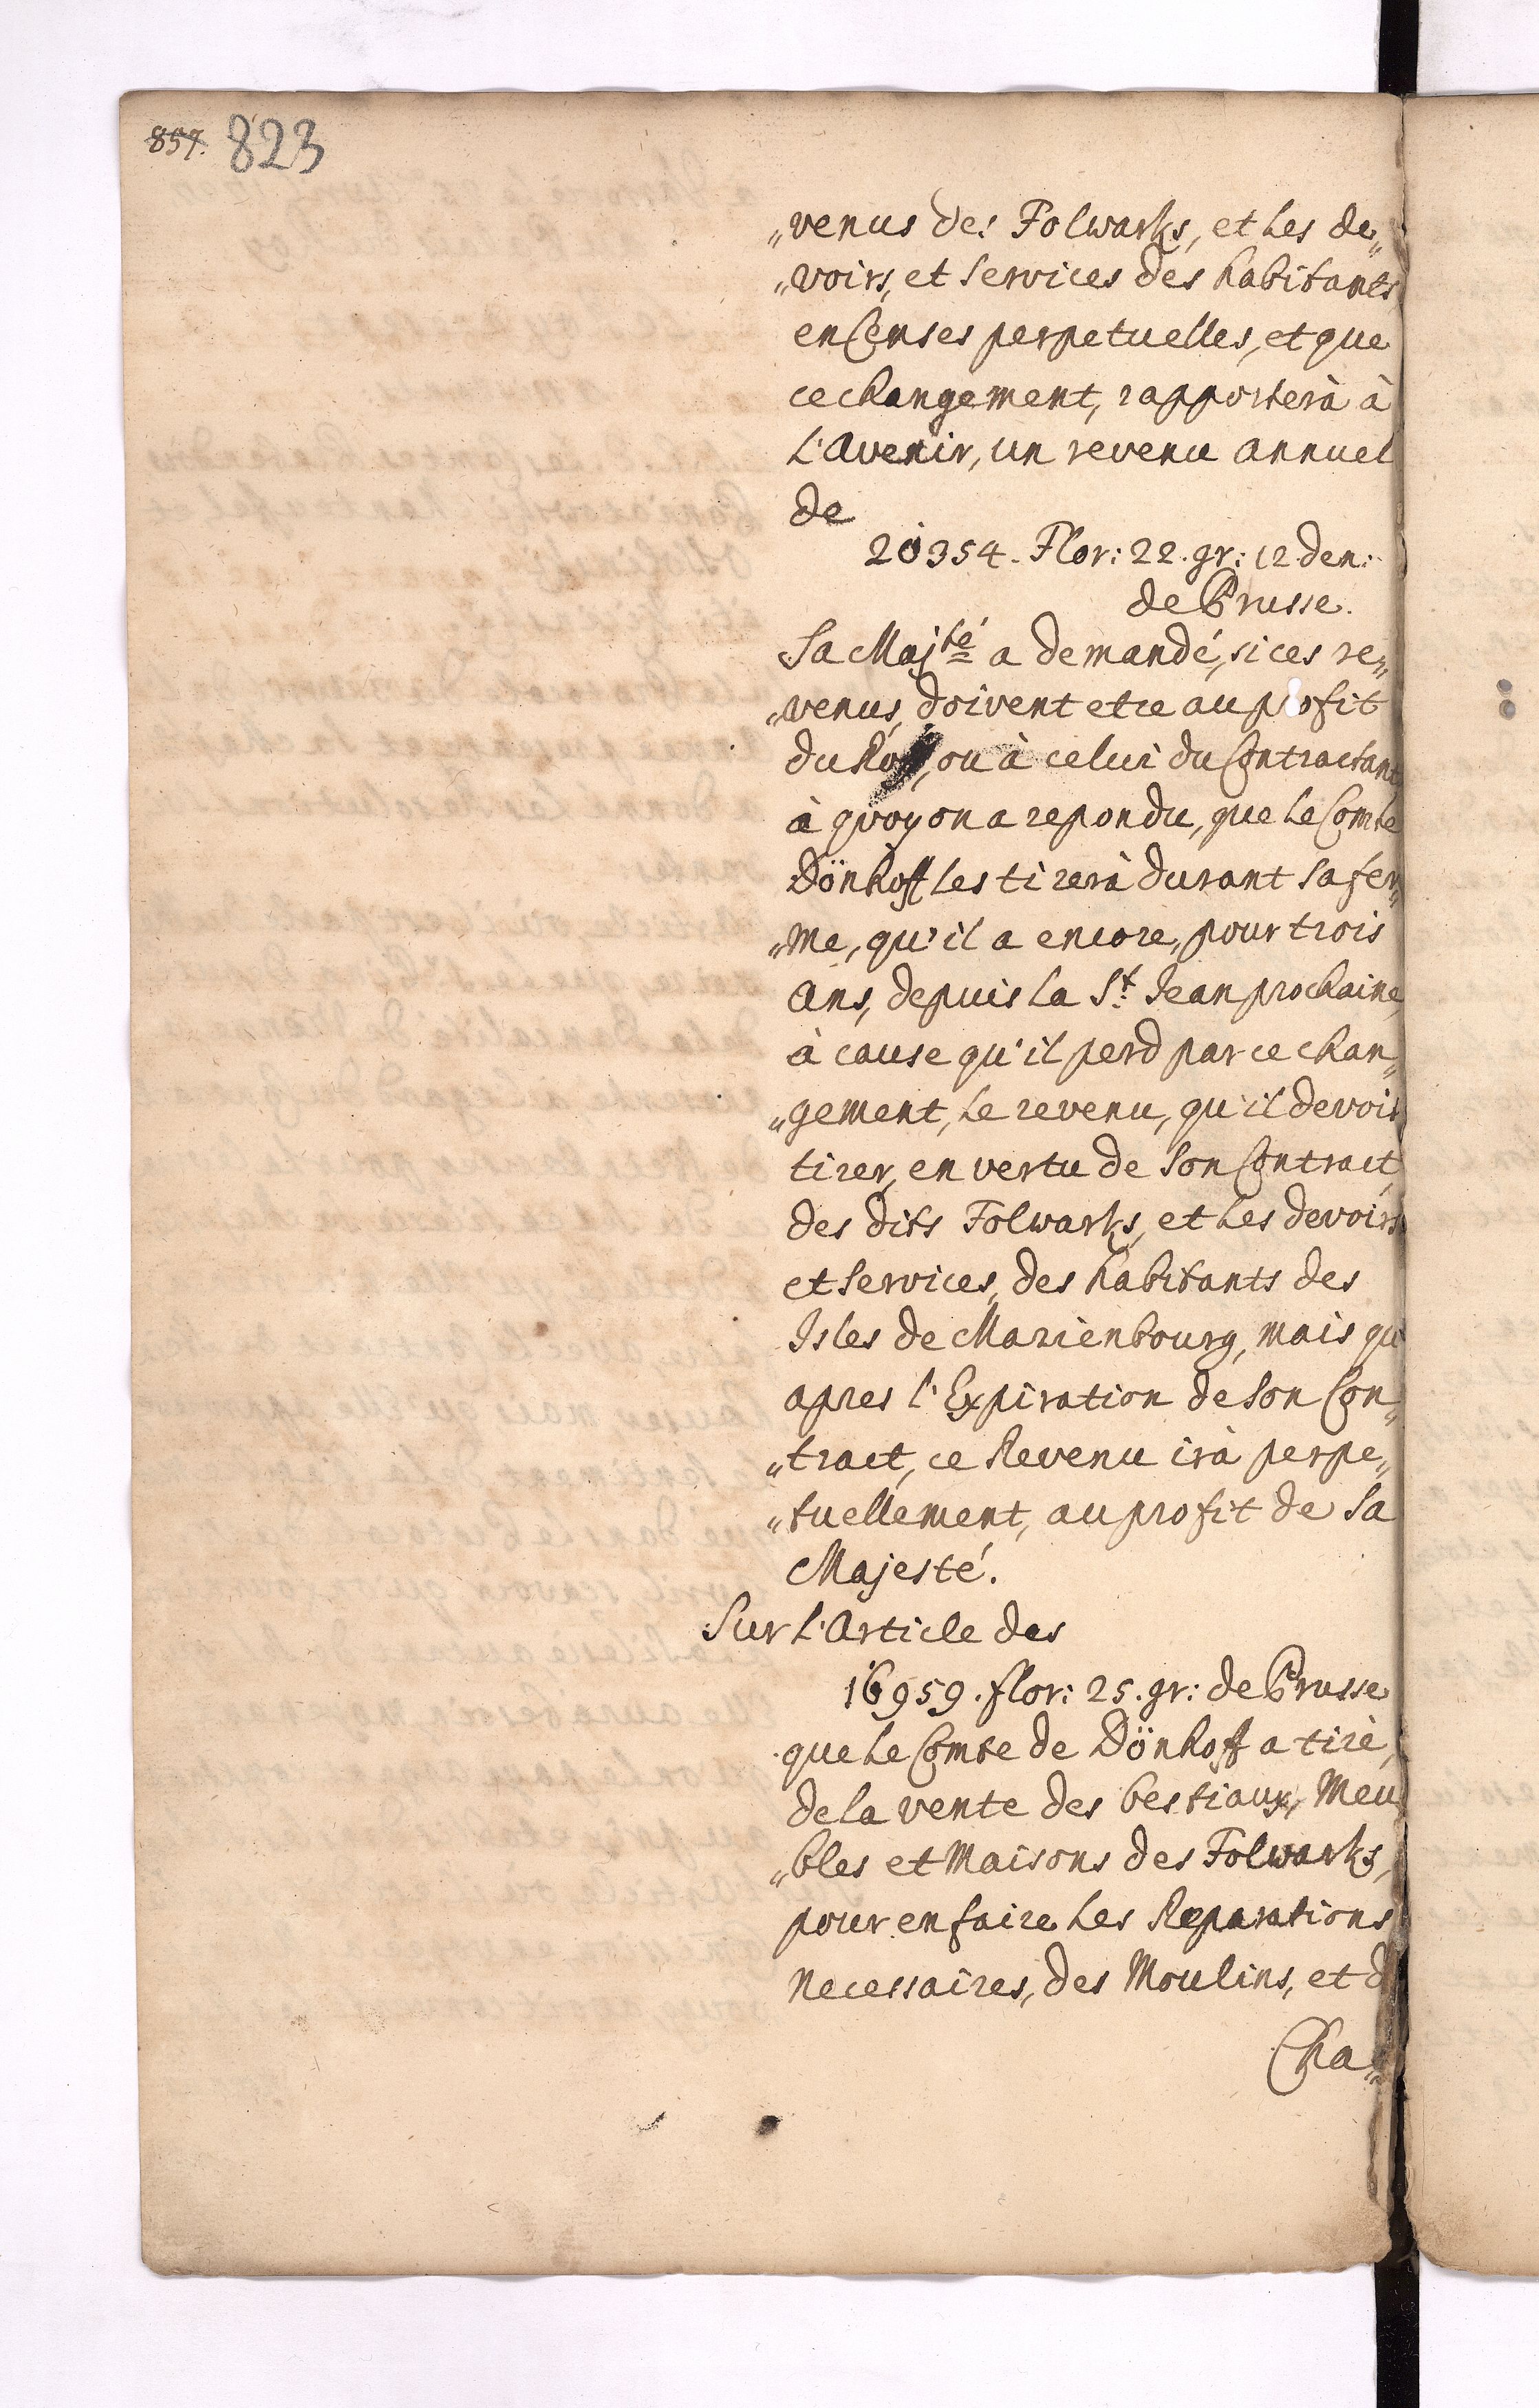 857. 823
„venus des Folwarks, et les de„
„voirs, et services des habitants
en Censes perpetuelles, et que
ce changement, rapporterà à
l'Avenir, un revenu annuel
de
20354. Flor: 22. gr: 12 den:
de Prusse.
Sa Majté a demandé, si ces re„
„venus, doivent etre au profit
du Roy, ou à celui du Contractant
à quoy on a repondu, que le Comte
Dönhoff les tirerà durant sa fer„
„me, qu'il a encore, pour trois
Ans, depuis la St. Jean prochaine,
à cause qu'il perd par ce chan„
„gement, le revenu, qu'il devoit
tirer, en vertu de son Contract,
des dits Folwarks, et les devoirs
et services, des habitants des
Isles de Marienbourg, mais qu
apres l'Expiration de son Con„
„tract, ce Revenu irà perpe„
„tuellement, au profit de Sa
Majesté.
Sur l'Article des
16959. flor: 25. gr: de Prusse
que le Comte de Dönhoff a tiré,
de la vente des bestiaux, Meu
„bles et Maisons des Folwarks,
pour en faire les Reparations
necessaires, des Moulins, et d
Cha„